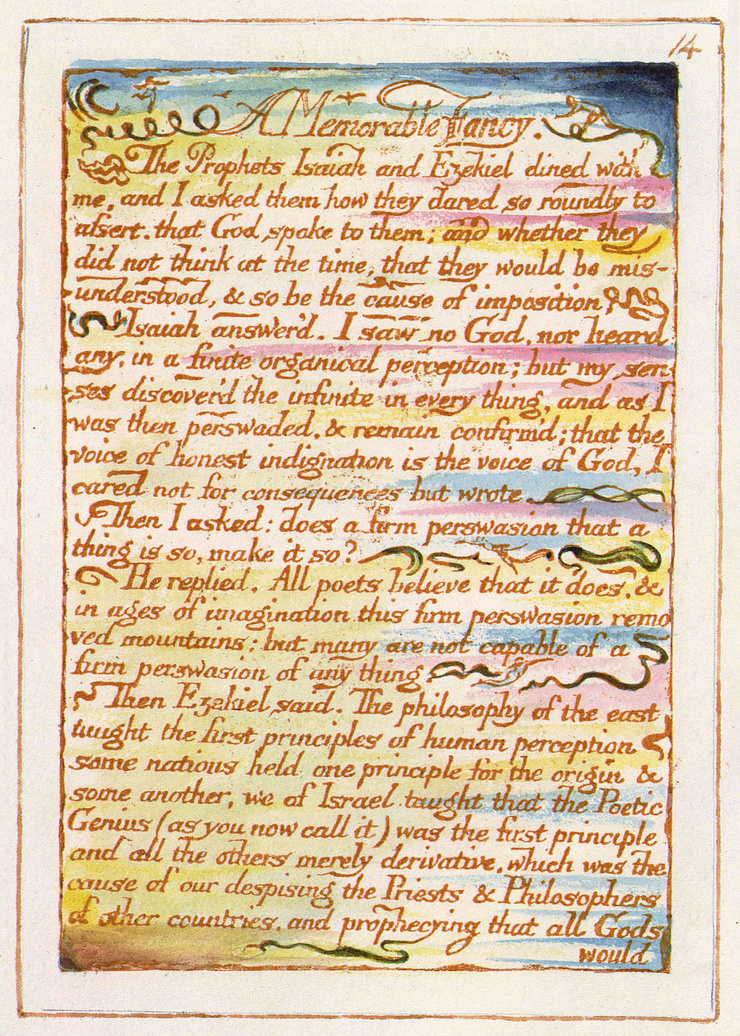 14
A Memorable Fancy.
The Prophets Isaiah and Ezekiel dined with
me, and I asked them how they dared so roundly to
assert. that God spoke to them; and whether they
did not think at the time, that they would be mis-
understood, & so be the cause of imposition?
Isaiah answer'd. I saw no God, nor heard
any, in a finite organical perception; but my sen
ses discover'd the infinite in every thing, and as I
was then perswaded, & remain confirm'd; that the
voice of honest indignation is the voice of God, I
cared not for consequences but wrote.
Then I asked: does a firm perswasion that a
thing is so, make it so?
He replied. All poets believe that it does, &
in ages of imagination this firm perswasion remo
ved mountains; but many are not capable of a
firm perswasion of any thing.
Then Ezekiel said. The philosophy of the east
taught the first principles of human perception
some nations held one principle for the origin &
some another, we of Israel taught that the Poetic
Genius (as you now call it) was the first principle
and all the others merely derivative, which was the
cause of our despising the Priests & Philosophers
of other countries, and prophecying that all Gods
would